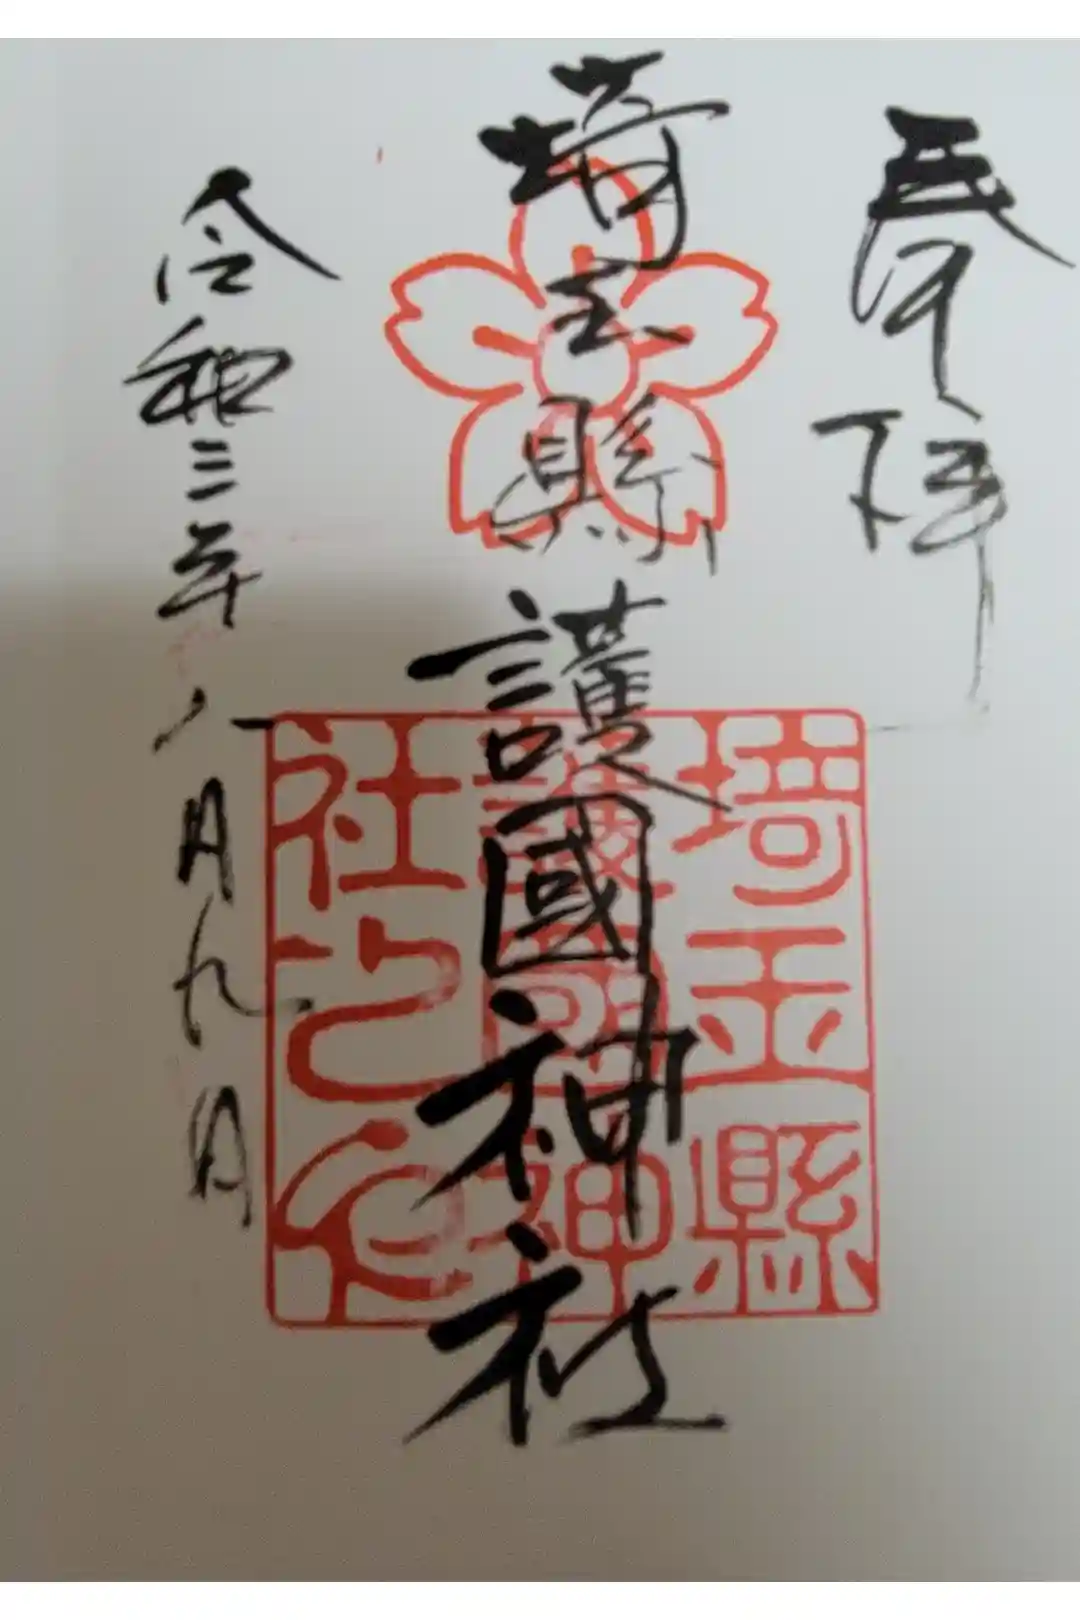 奉拝
埼玉縣護國神社
令和三年八月九日
埼玉縣
護國神
社之印